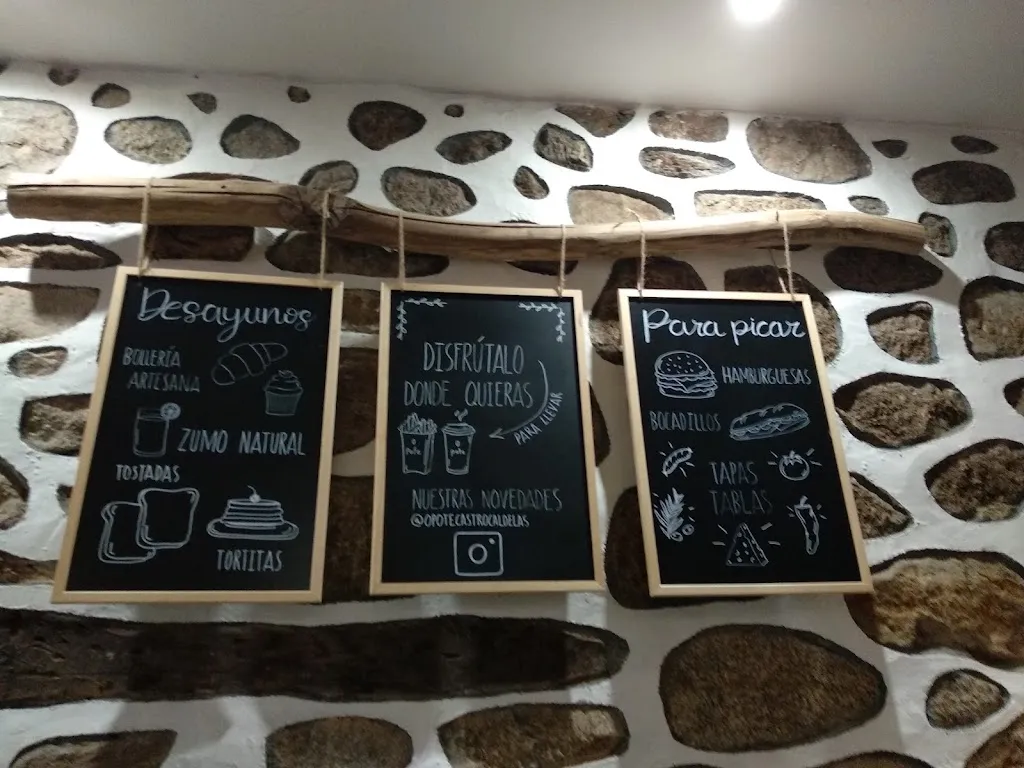 Desayunos
BOLLERÍA
ARTESANA
ZUMO NATURAL
TOSTADAS
TORTITAS
DISFRÚTALO
DONDE QUIERAS
PARA LLEVAR
NUESTRAS NOVEDADES
@OPOTECASTROCALDELAS
Para picar
HAMBURGUESAS
BOCADILLOS
TAPAS
TABLAS